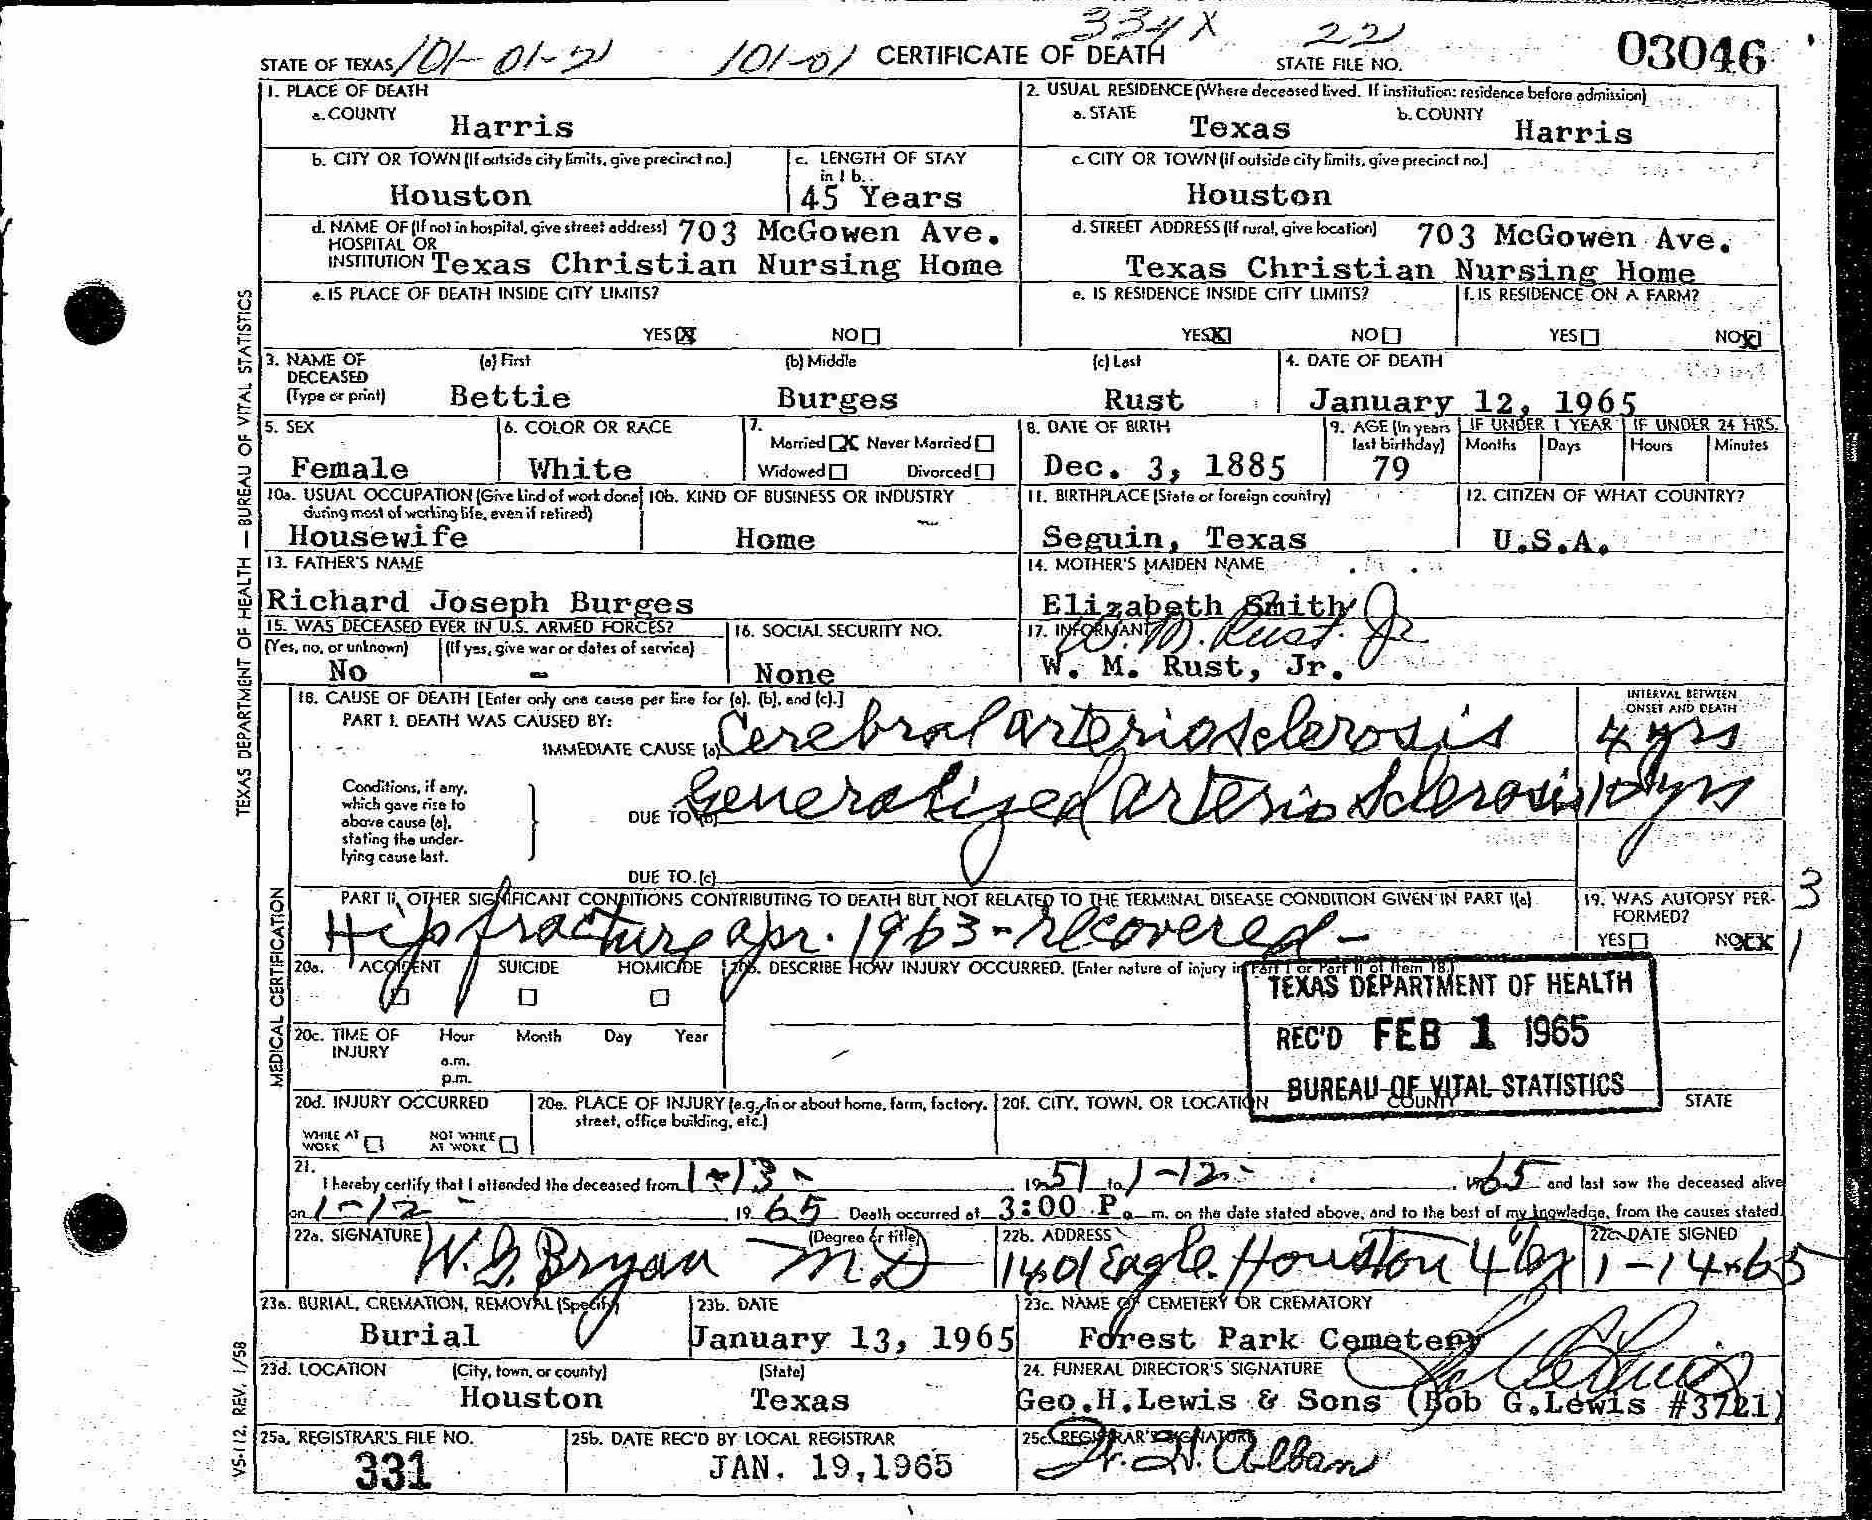 334 X 22
STATE OF TEXAS 101-01-21 101-01 CERTIFICATE OF DEATH STATE FILE NO. 03046
1. PLACE OF DEATH
a. COUNTY Harris
2. USUAL RESIDENCE (Where deceased lived. If institution: residence before admission)
a. STATE Texas b. COUNTY Harris
b. CITY OR TOWN (If outside city limits, give precinct no.) Houston
c. LENGTH OF STAY in 1 b. 45 Years
c. CITY OR TOWN (If outside city limits, give precinct no.) Houston
d. NAME OF (If not in hospital, give street address) 703 McGowen Ave.
HOSPITAL OR
INSTITUTION Texas Christian Nursing Home
d. STREET ADDRESS (If rural, give location) 703 McGowen Ave.
Texas Christian Nursing Home
e. IS PLACE OF DEATH INSIDE CITY LIMITS?
YES X NO
e. IS RESIDENCE INSIDE CITY LIMITS?
YES X NO
f. IS RESIDENCE ON A FARM?
YES NO X
3. NAME OF DECEASED (Type or print)
(a) First Bettie
(b) Middle Burges
(c) Last Rust
4. DATE OF DEATH
January 12, 1965
5. SEX
Female
6. COLOR OR RACE
White
7.
Married X Never Married
Widowed Divorced
8. DATE OF BIRTH
Dec. 3, 1885
9. AGE (In years last birthday)
79
IF UNDER 1 YEAR
Months Days
IF UNDER 24 HRS.
Hours Minutes
10a. USUAL OCCUPATION (Give kind of work done during most of working life, even if retired)
Housewife
10b. KIND OF BUSINESS OR INDUSTRY
Home
11. BIRTHPLACE (State or foreign country)
Seguin, Texas
12. CITIZEN OF WHAT COUNTRY?
U.S.A.
13. FATHER'S NAME
Richard Joseph Burges
14. MOTHER'S MAIDEN NAME
Elizabeth Smith
15. WAS DECEASED EVER IN U.S. ARMED FORCES?
(Yes, no, or unknown) No
(If yes, give war or dates of service) -
16. SOCIAL SECURITY NO.
None
17. INFORMANT W. M. Rust. Jr
W. M. Rust, Jr.
18. CAUSE OF DEATH [Enter only one cause per line for (a), (b), and (c).]
PART I. DEATH WAS CAUSED BY:
IMMEDIATE CAUSE (a) Cerebral arteriosclerosis
INTERVAL BETWEEN ONSET AND DEATH
4 yrs
Conditions, if any, which gave rise to above cause (a), stating the underlying cause last.
DUE TO (b) Generalized arterio sclerosis 10 yrs
DUE TO (c)
PART II. OTHER SIGNIFICANT CONDITIONS CONTRIBUTING TO DEATH BUT NOT RELATED TO THE TERMINAL DISEASE CONDITION GIVEN IN PART I(a)
Hip fracture apr. 1963 - recovered -
19. WAS AUTOPSY PERFORMED?
YES NO X
3
1
20a. ACCIDENT SUICIDE HOMICIDE
20b. DESCRIBE HOW INJURY OCCURRED. (Enter nature of injury in Part I or Part II of Item 18.)
TEXAS DEPARTMENT OF HEALTH
REC'D FEB 1 1965
BUREAU OF VITAL STATISTICS
20c. TIME OF INJURY
Hour Month Day Year
a.m.
p.m.
20d. INJURY OCCURRED
WHILE AT WORK NOT WHILE AT WORK
20e. PLACE OF INJURY (e.g., in or about home, farm, factory, street, office building, etc.)
20f. CITY, TOWN, OR LOCATION COUNTY STATE
21.
I hereby certify that I attended the deceased from 1-13- 1951 to 1-12- 1965 and last saw the deceased alive
on 1-12- 1965 Death occurred at 3:00 P. m. on the date stated above, and to the best of my knowledge, from the causes stated.
22a. SIGNATURE (Degree or title)
W. G. Bryan M.D
22b. ADDRESS
1401 Eagle. Houston 4 Tex
22c. DATE SIGNED
1-14-65
23a. BURIAL, CREMATION, REMOVAL (Specify)
Burial
23b. DATE
January 13, 1965
23c. NAME OF CEMETERY OR CREMATORY
Forest Park Cemetery
23d. LOCATION (City, town, or county) (State)
Houston Texas
24. FUNERAL DIRECTOR'S SIGNATURE
Geo.H.Lewis & Sons (Bob G.Lewis #3721)
25a. REGISTRAR'S FILE NO.
331
25b. DATE REC'D BY LOCAL REGISTRAR
JAN. 19,1965
25c. REGISTRAR'S SIGNATURE
TEXAS DEPARTMENT OF HEALTH — BUREAU OF VITAL STATISTICS
MEDICAL CERTIFICATION
VS-112, REV. 1/58